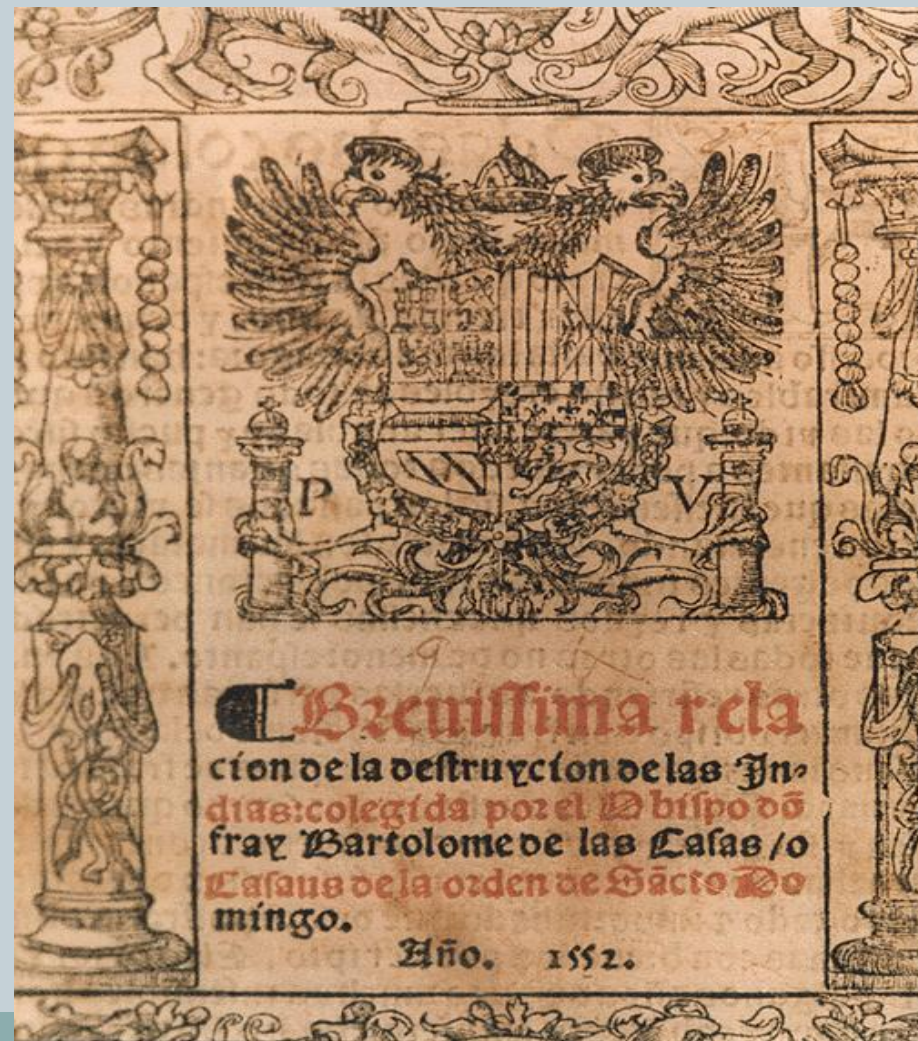 P V
Breuissima rela
cion de la destruycion de las In-
dias: colegida por el Obispo dõ
fray Bartolome de las Casas / o
Casaus de la orden de Sãcto Do
mingo.
Año. 1552.